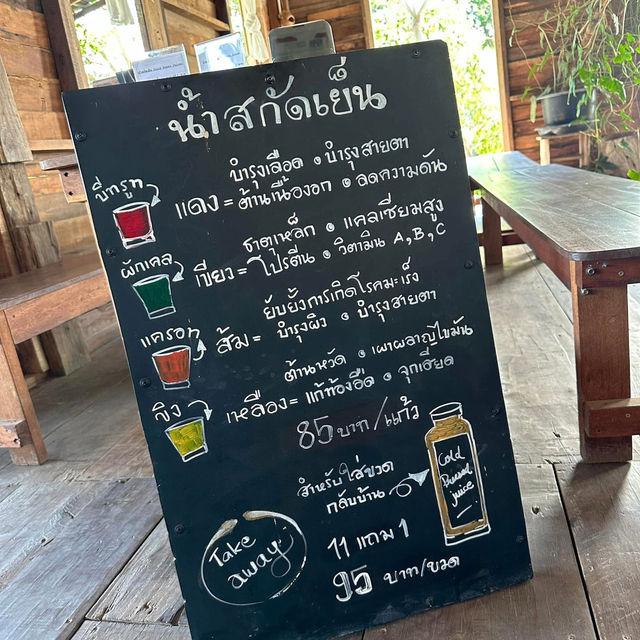 น้ำสกัดเย็น
บีทรูท
บำรุงเลือด บำรุงสายตา
แดง = ต้านเนื้องอก ลดความดัน
ผักเคล
ธาตุเหล็ก แคลเซียมสูง
เขียว = โปรตีน วิตามิน A, B, C
แครอท
ยับยั้งการเกิดโรคมะเร็ง
ส้ม = บำรุงผิว บำรุงสายตา
ขิง
ต้านหวัด เผาผลาญไขมัน
เหลือง = แก้ท้องอืด จุกเสียด
85 บาท/แก้ว
สำหรับใส่ขวด
กลับบ้าน
Cold
juice
Take
away
11 แถม 1
95 บาท/ขวด